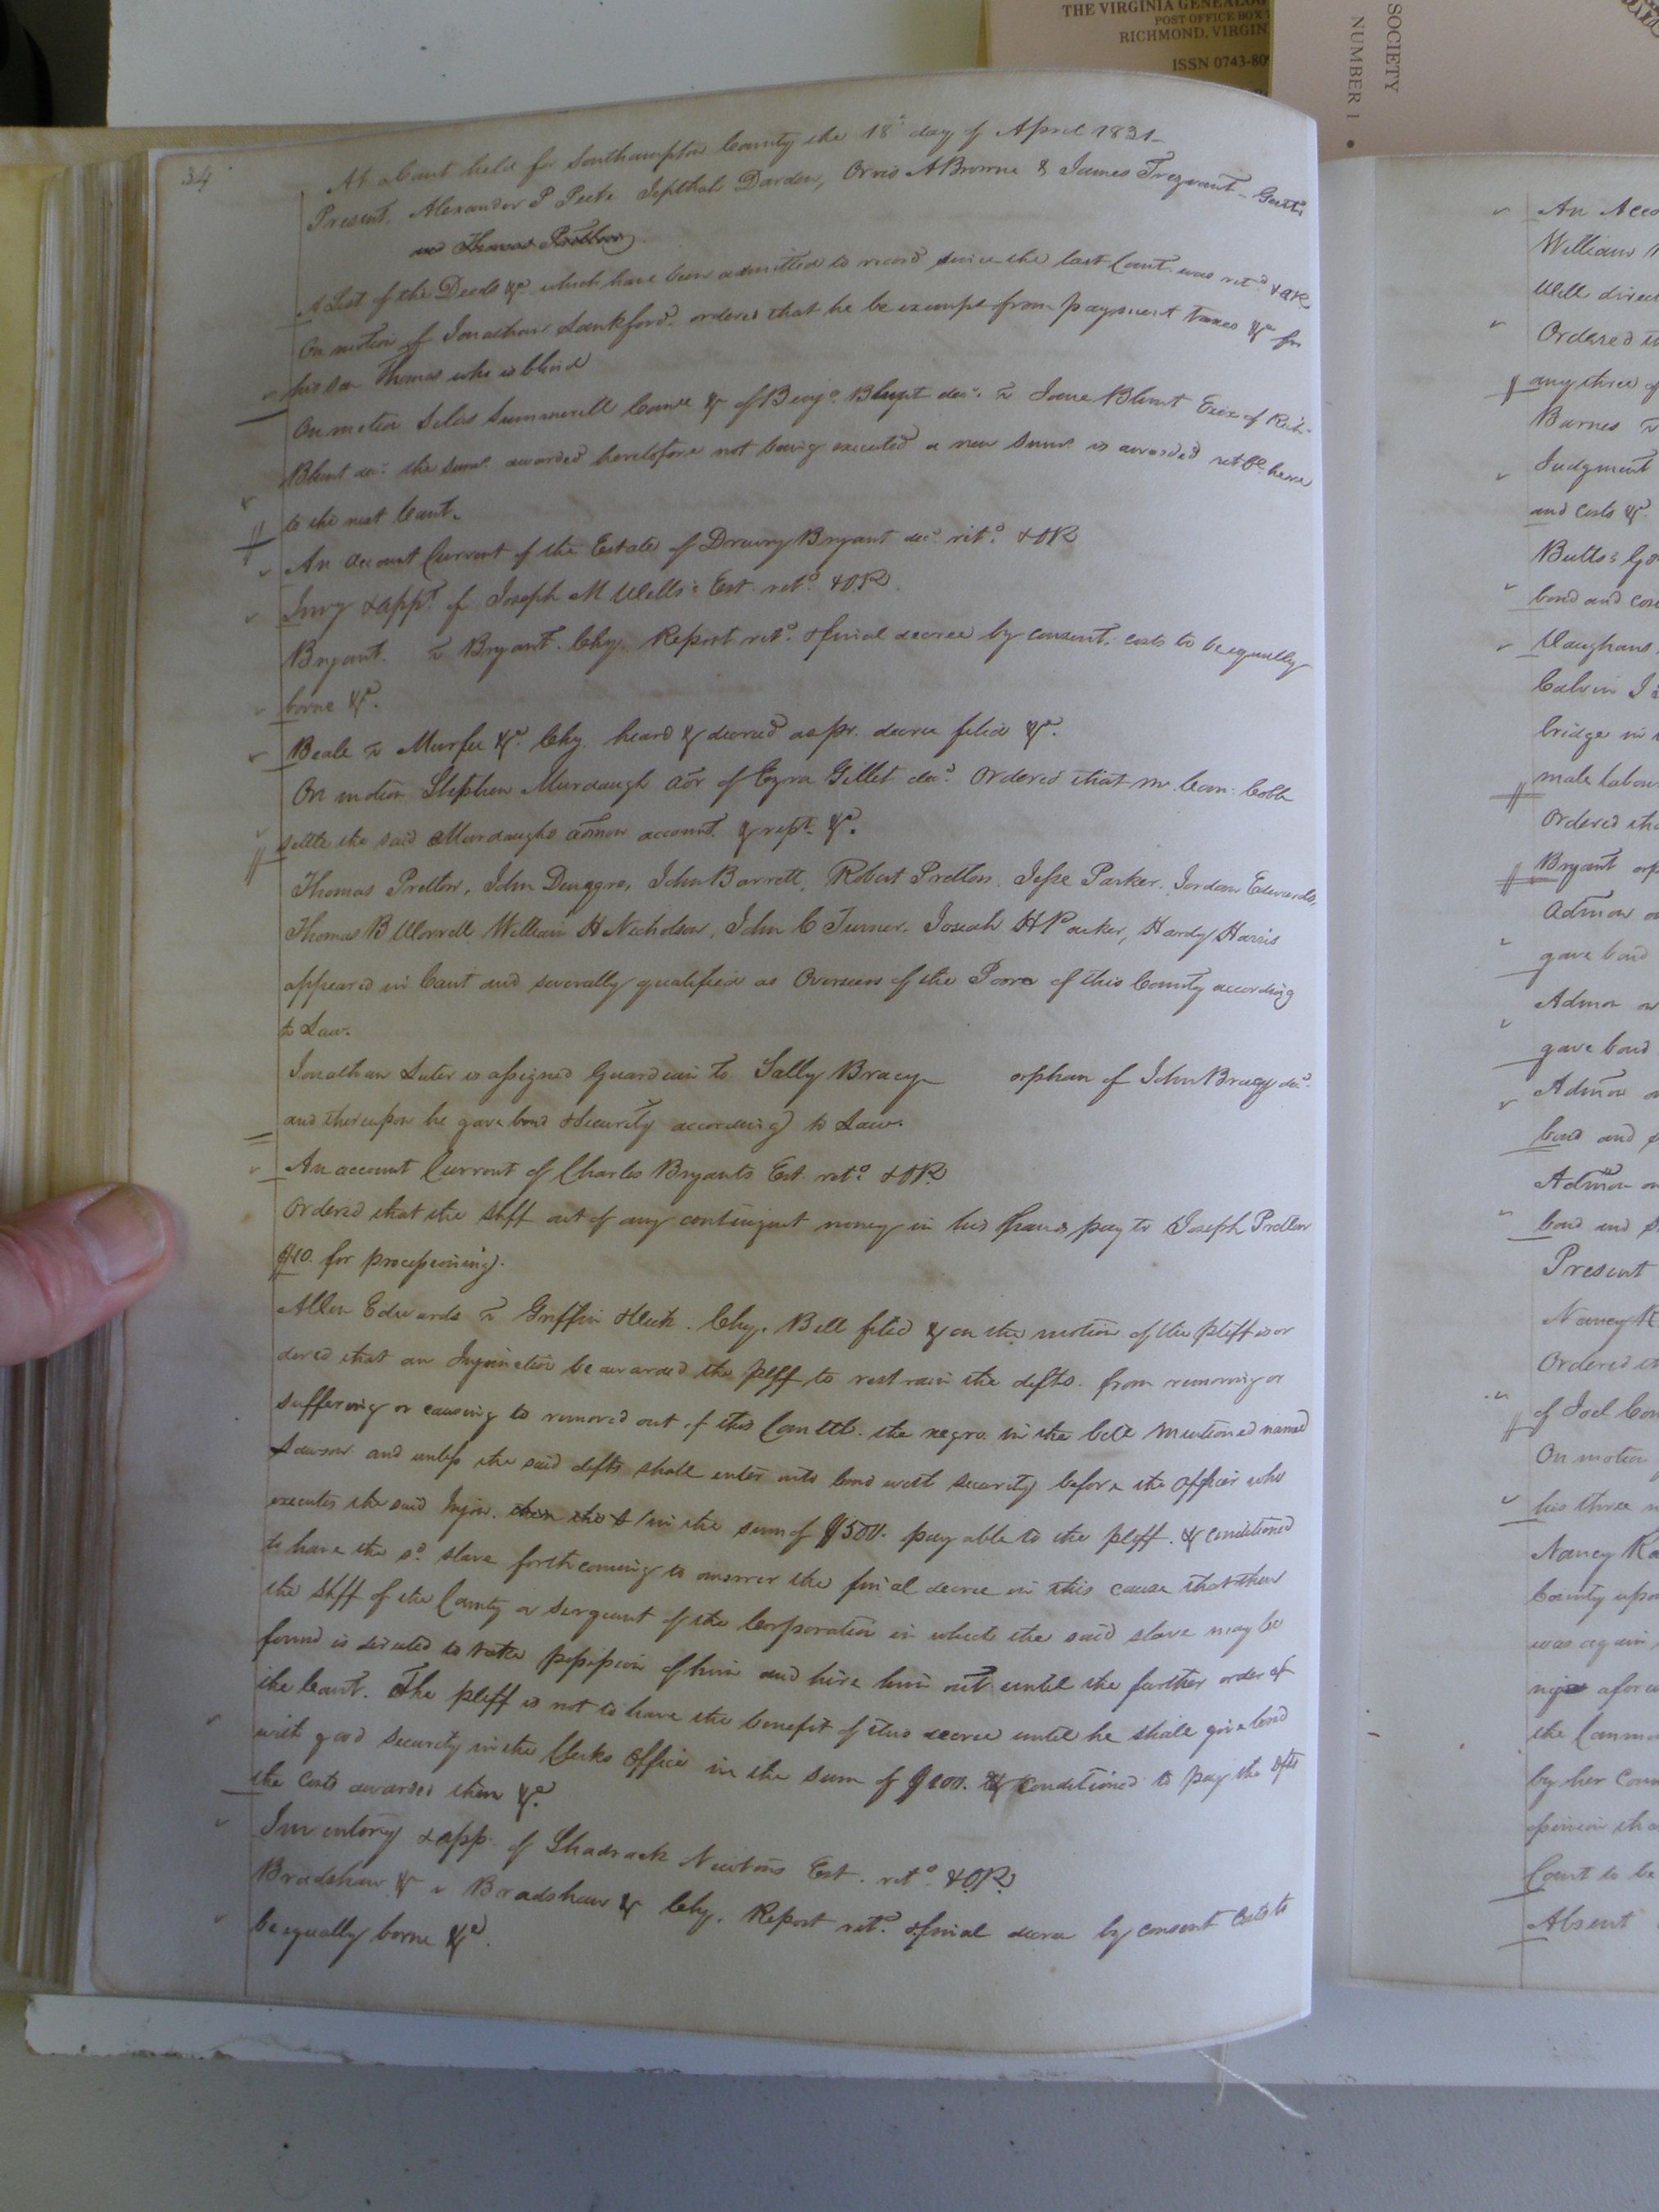 THE VIRGINIA GENEALOG
POST OFFICE BOX
RICHMOND, VIRGIN
ISSN 0743-809
SOCIETY
NUMBER 1
34
At a Court held for Southampton County the 18th day of April 1831
Present. Alexander P Peete Jepthah Darden, Orris A Browne & James Trezvant Gent:
and Thomas Pretlow
A List of the Deeds &c which have been admitted to record since the last Court was retd & OR
On motion of Jonathan Lankford ordered that he be exempt from payment taxes &c for
his son Thomas who is blind
On motion Silas Summerell &c of Benja Blunt decd. vs Blunt Exix of
Blunt decd. the sums. awarded heretofore not being executed a new sums is awarded retble here
to the next Court.
An Account Current of the Estate of Drewry Bryant decd. retd. & OR
Invy & appt. of Joseph M Wells's Est. retd. & OR.
Bryant. vs Bryant. Chy. Report retd. & final decree by consent. costs to be equally
borne &c.
Beale vs Murfee &c. Chy. heard & decreed as pr. decree filed &c.
On motion Stephen Murdaugh aor of Ezra Gillet decd. Ordered that Mr Com: Cobb
settle the said Murdaughs admon account. & rept. &c.
Thomas Pretlow, John Barrett, Robert Pretlow. Jesse Parker. Jordan Edwards,
Thomas B Worrell, William H Nicholson, John C Turner. Josiah H Parker, Hardy Harris
appeared in Court and severally qualified as Overseers of the Poor of this County according
to Law.
Jonathan Suter is assigned Guardian to Sally Bracy orphan of John Bracy decd.
and thereupon he gave bond & security according to Law.
An account Current of Charles Bryants Est. retd. & OR
Ordered that the Shff out of any contingent money in his hands pay to Joseph Pretlow
$10. for processioning.
Allen Edwards vs Griffin & Chy. Bill filed & on the motion of the pltff is or
dered that an Injunction be awarded the plff to restrain the defts. from removing or
suffering or causing to removed out of this Com wlth. the negro in the bill mentioned named
and unless the said defts shall enter into bond with security before the Officer who
executes the said Injon. then the S/ in the sum of $500. payable to the plff. & conditioned
to have the sd. slave forthcoming to answer the final decree in this cause that then
the Shff of the County or Sergeant of the Corporation in which the said slave may be
found is directed to take possession of him and hire him out until the further order of
the Court. The plff is not to have the benefit of this decree until he shall give bond
with good security in the Clerks Office in the sum of $100. & conditioned to pay the dfts
the costs awarded them &c.
Inventory & app. of Shadrack Newtons Est. retd. & OR.
Bradshaw & vs Bradshaw & Chy. Report retd. & final decree by consent Costs to
be equally borne &c.
An Acco
William
Will direct
Ordered
any three of
Barnes vs
Judgment
and costs &c.
Butts's
bond and
Vaughans
Calvin J
bridge in
male labou
Ordered tha
Bryant orp
Admon on
gave bond
Admon on
gave bond
Admon on
bond and s
Admon on
bond and s
Present
Nancy
Ordered
of Joel
On motion
his three
Nancy
County upon
was again
afore
the Comm
by her Coun
opinion tha
Court to be
Absent